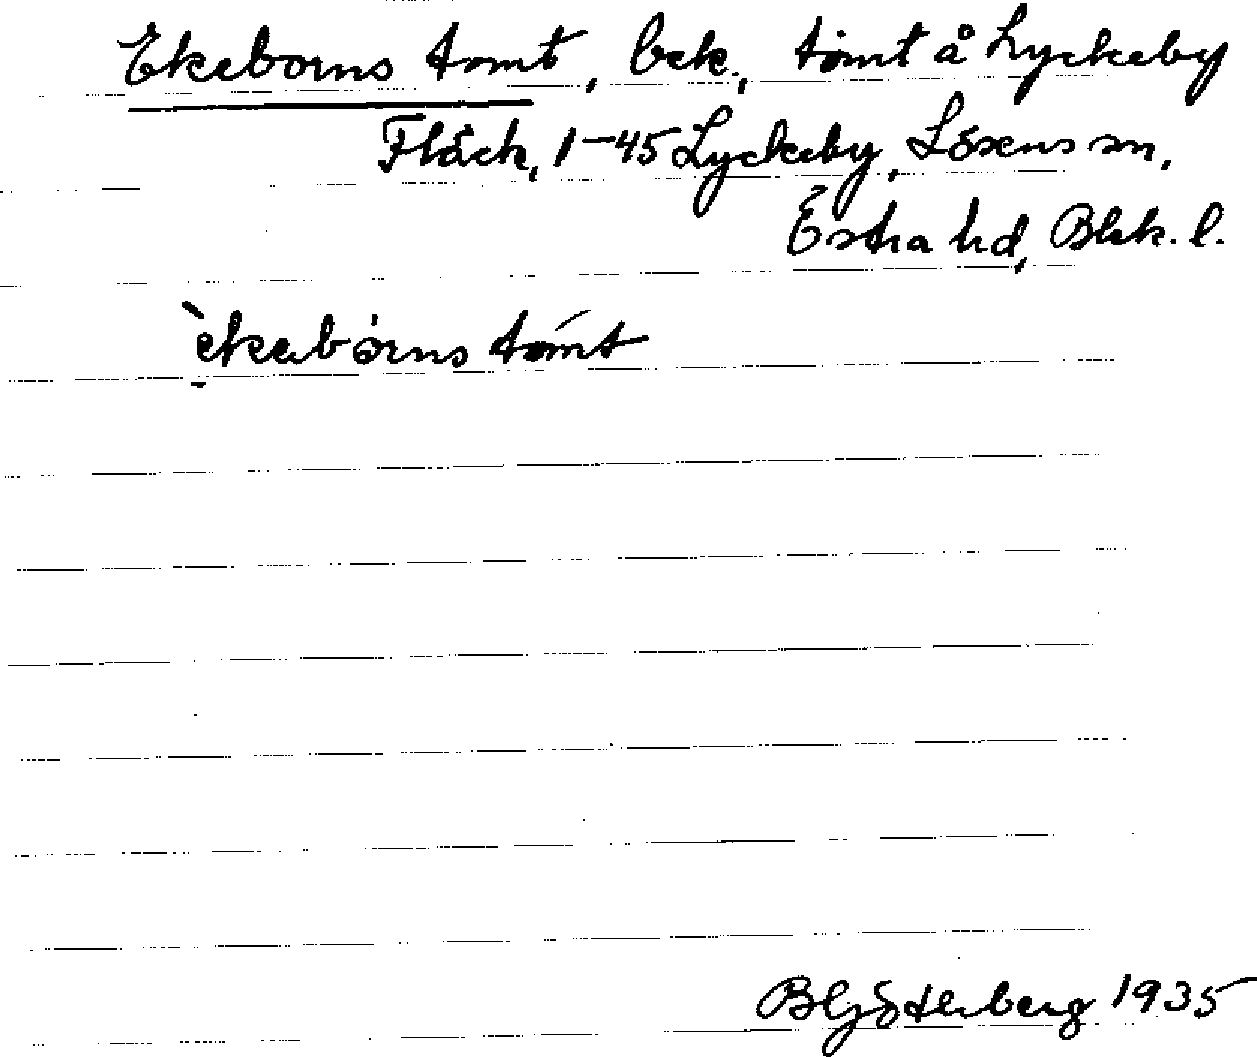 Ekeborns tomt, bek., tomt å Lyckeby
Fläck, 1-45 Lyckeby, Lösens sn,
Östra hd, Blek. l.
ekebórns tomt
B Götherberg 1935